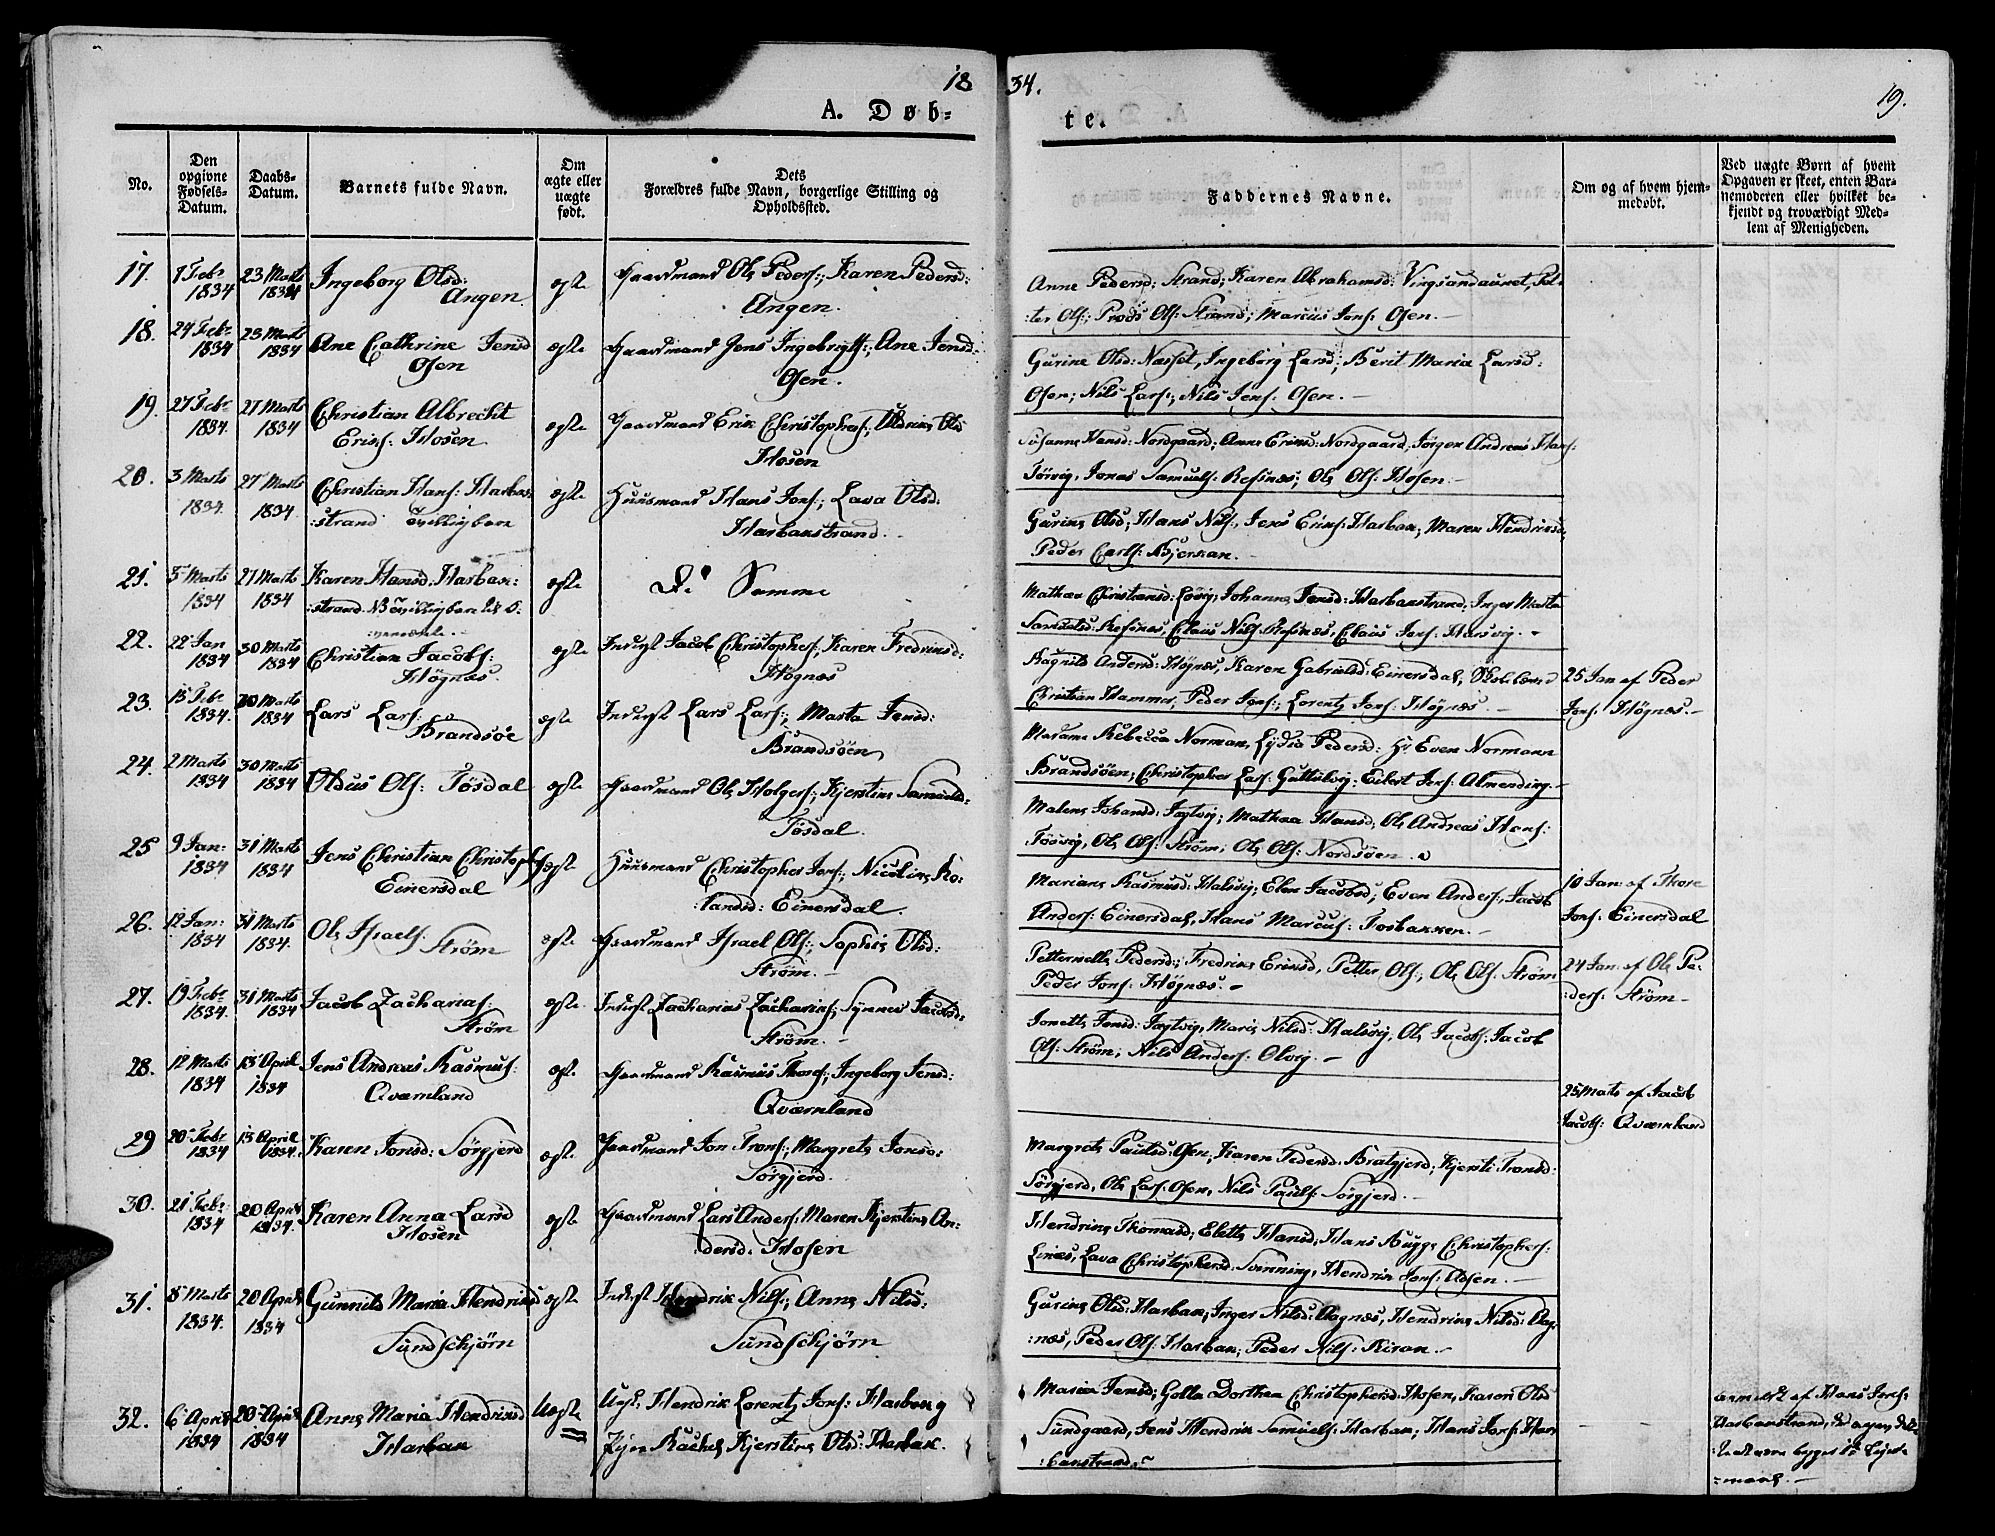 18
34.
19.
A. Døb=
te.
No.
Den opgivne Fødsels-Datum.
Daabs-Datum.
Barnets fulde Navn.
Om ægte eller uægte født.
Dets Forældres fulde Navn, borgerlige Stilling og Opholdssted.
Faddernes Navne.
Om og af hvem hjemmedøbt.
Ved uægte Børn af hvem Opgaven er skeet, enten Barnemoderen eller hvilket bekjendt og troværdigt Medlem af Menigheden.
17.
7 Febr 1834
23 Marts 1834
Ingeborg Olsd:
Angen
ægte
Gaardmand Ole Peders:, Karen Pedersd:
Angen.
Anne Pedersd: Strand; Karen Abrahamsd: Vingsandaunet, Pet=
:ter Ols:; Ols: Strand; Marcus Jons: Osen.
18.
24 Febr 1834
23 Marts 1834
Ane Cathrine Jensd
Osen
ægte
Gaardmand Jens Ingebrigts:, Ane Jensd:
Osen.
Gurine Olsd: Næsset, Ingeborg Larsd; Berit Maria Larsd:
Osen; Nils Lars:; Nils Jens: Osen.
19.
27 Febr 1834.
27 Marts 1834
Christian Albrecht
Eriks: Hosen
ægte
Gaardmand Erik Christophers:, Olsd
Hosen
Susanna Hansd: Nordgaard; Anne Eriksd: Nordgaard, Jørgen Andreas Hans:
Jonas Samuels: Refsnæs; Ole Ols: Hosen
20.
3 Marts 1834.
27 Marts 1834.
Christian Hans: Harbak:
:strand Tvillingbarn
ægte
Huusmand Hans Jons:, Lava Olsd:
Harbakstrand.
Gurine Olsd; Hans Nils:, Jens Eriks: Harbak; Maren Hendriksd,
Peder Carls: Bjerkan.
21.
5 Marts 1834
27 Marts 1834
Karen Hansd: Harbak:
:strand NB Tvillingbarn
ægte
Do Samme
Mathea Christiansd: Johanna Jensd: Harbakstrand, Inger Marta
Samuelsd: Refsnes, Claus Nils: Refsnæs, Claus Jons: Harsvig.
22.
22 Jan 1834
30 Marts 1834
Christian Jacobs:
Høgnæs.
ægte
Inderst Jacob Christophers:, Karen Fredriksd:
Høgnæs
Ragnild Andersd: Høgnæs, Karen Gabrielsd: Einersdal,
Christian Hammer, Peder Jons:, Lorentz Jons: Høgnæs
25 Jan af Peder
Jons: Høgnæs.
23.
15 Febr 1834.
30 Marts 1834
Lars Lars:
Brandsøe
ægte
Inderst Lars Lars:, Marta Jensd:
Brandsøen
Madame Rebecca Norman, Lydia Pedersd: Hr Even Normann
Brandsøen; Christopher Lars: Guttelvig: Eilert Jens: Almending.
24.
2 Marts 1834
30 Marts 1834
Oldus Ols: Tøsdal
ægte
Gaardmand Ole Holgers:, Kjerstine Samuelsd:
Tøsdal.
Malene Johansd: Mathea Hansd, Ole Andreas Hans:
Ole Ols: Strøm; Ole Ols: Nordsøen.
25
9 Jan: 1834
31 Marts 1834
Jens Christian Christophs
Einersdal
ægte
Huusmand Christopher Jons:, Nicoline Ro:
:landsd: Einersdal.
Mariane Rasmusd: Halsvig; Elen Jacobsd; Even Anders:, Jacob
Anders: Einersdal, Hans Marcus: Fosbakken.
10 Jan: af Thore
Jons: Einersdal
26.
12 Jan: 1834
31 Marts 1834.
Ole Israels:
Strøm
ægte
Gaardmand Israel Ols:, Sophie Olsd:
Strøm.
Petternelle Pedersd:; Fredrikke Eriksd, Petter Ols:, Ole Ols: Strøm
Peder Jons: Høgnæs.
24 Jan: af Ole Pe:
:ders: Strøm
27.
19 Febr 1834.
31 Marts 1834
Jacob Zacharias:
Strøm
ægte
Inderst Zacharias Zacharias:, Synnev Jacobsd:
Strøm.
Jonetta Jensd: Marie Nilsd: Halsvig, Ole Jacobs: Jacob
Ols: Strøm; Nils Anders:
28.
12 Marts 1834
13 April 1834
Jens Andreas Rasmus:
Qværnland
ægte
Gaardmand Rasmus Thores:, Ingeborg Jensd:
Qværnland
25 Marts af Jacob
Jacobs: Qværnland
29
20 Febr 1834
13 April 1834.
Karen Jonsd: Sørgjerd
ægte
Gaardmand Jon Trons:, Margrete Jonsd:
Sørgjerd.
Margrete Paulsd: Osen, Karen Pedersd: Bratgjerd, Kjersti Tronsd:
Sørgjerd, Ole Lars: Osen, Nils Pauls: Sørgjerd.
30.
21 Febr 1834
20 April 1834.
Karen Anna Larsd
Hosen
ægte
Gaardmand Lars Anders: Maren Kjerstine An:
:dersd: Hosen
Hendrine Thomasd; Elette Hansd, Hans Rugge Christophers:
Linæs, Lava Christophersd: Svinning, Hendrik Jons: Hosen.
31.
8 Marts 1834.
20 April 1834
Gunnild Maria Hendriksd
Sundsetkjørn
ægte
Inderst Hendrik Nils:, Anne Nilsd:
Sundsetkjørn
Gurine Olsd: Harbak, Inger Nilsd: Hendrine Nilsd:
:næs, Peder Ols: Harbak; Peder Nils: Kiran
32.
6 April 1834
20 April 1834
Anne Maria Hendriksd
Harbak
Uægte
Ungk: Hendrik Lorentz Jons: Harbak og
Pigen Rachel Kjerstine Olsd: Harbak.
Maria Jensd; Golla Dorthea Christophersd: Hosen, Karen Olsd
Sundgaard, Jens Hendrik Samuels: Harbak; Hans Jons: Har
:bakstrand.
anmeldt af Hans Jons:
Harbakstrand,